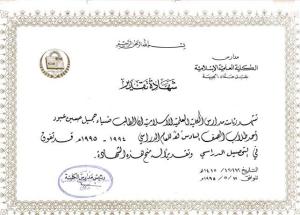 بسم الله الرحمن الرحيم
مدارس
الكلية العلمية الإسلامية
شهادة تقدير
تشهد رئاسة مدارس الكلية العلمية الإسلامية أن الطالب ضياء جميل حسين عبود
أحد طلاب الصف السادس للعام الدراسي ١٩٩٤ - ١٩٩٥ م قد تفوق
في التحصيل الدراسي وتقديراً له منح هذه الشهادة.
التاريخ
الموافق
رئيس مدارس الكلية